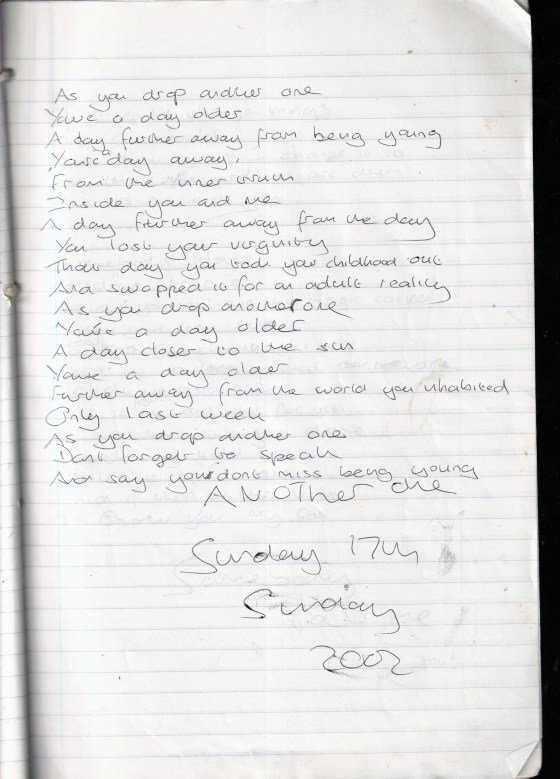 As you drop another one
Youre a day older
A day further away from being young
Youre a day away,
From the inner truth
Inside you and me
A day further away from the day
You lost your virginity
That day you took your childhood out
And swapped it for an adult reality
As you drop another one
Youre a day older
A day closer to the sun
Youre a day older
Further away from the world you inhabited
Only last week
As you drop another one
Dont forget to speak
And say you dont miss being young
ANOTHER One
Sunday 17th
Sunday
2002